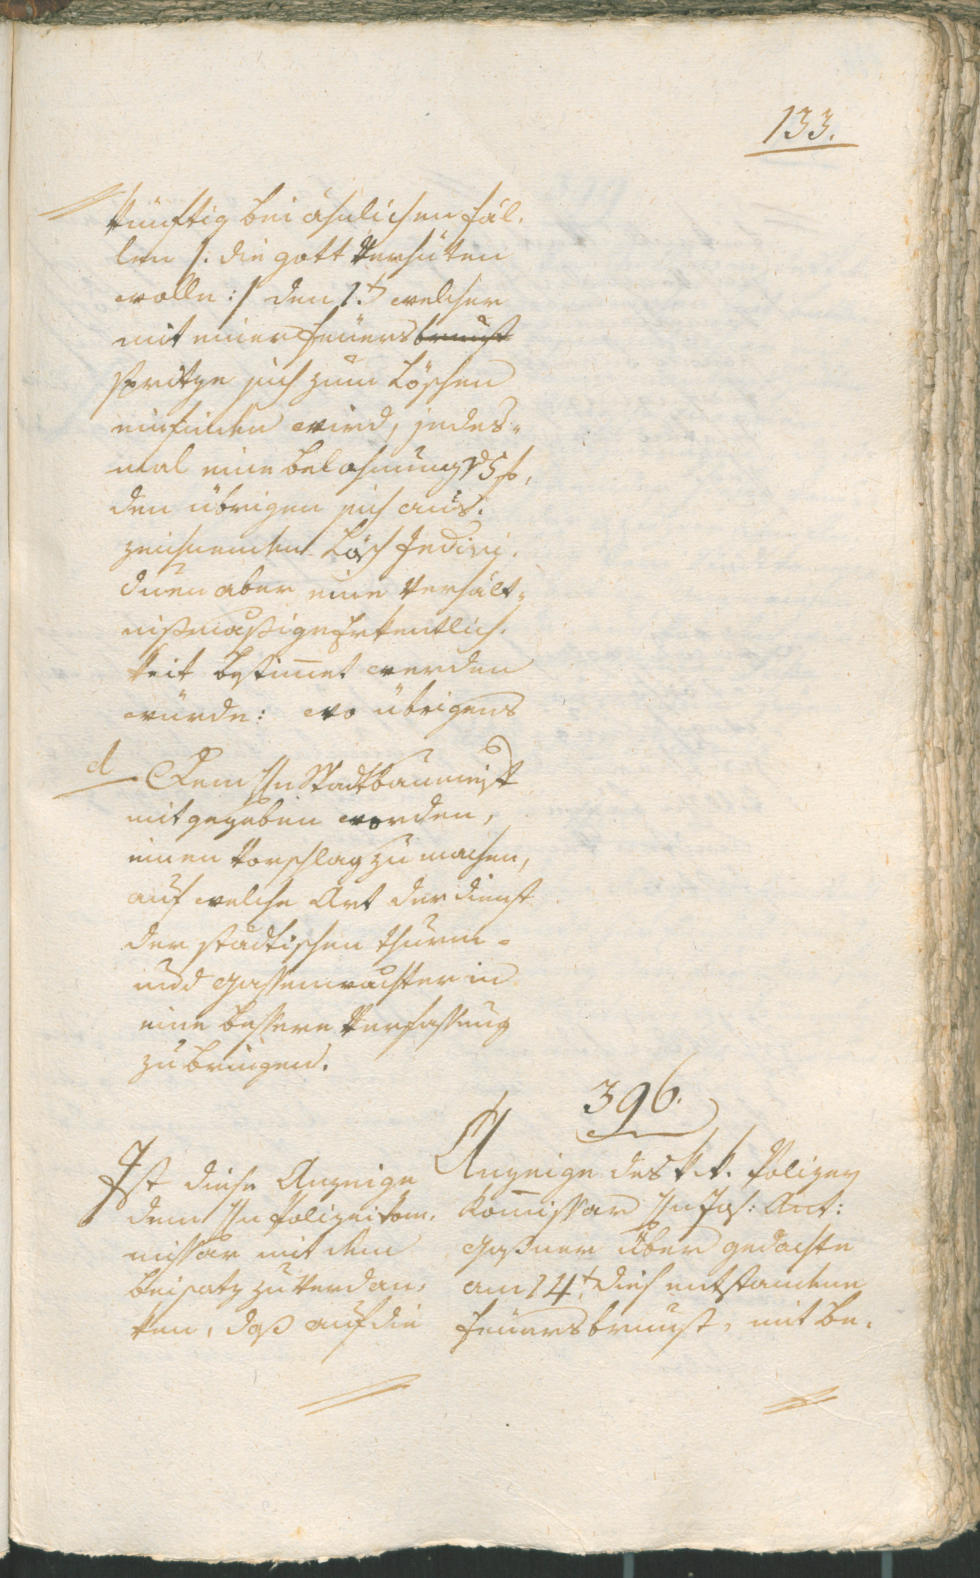 133.
künftig bei ähnlichen Fäl-
len /: die Gott Verhüten
wolle :/ den 1.t welcher
mit einer Feüersbrunst
spritze sich zum Löschen
einfinden wird, jedes-
mal eine Belohnung v 5 f,
den übrigen sich aus-
zeichnenden Lösch Indivi-
duen aber eine Verhält-
nißmaßige Erkentlich-
keit bestim̅et werden
würde: wo übrigens
d Dem Hn Stadtbaumeist
mitgegeben worden,
einen Vorschlag zu machen,
auf welche Art der Dienst
der städtischen Thurm-
und Gassenwachter in
eine bessere Verfassung
zu bringen.
396.
Ist diese Anzeige
dem Hn Polizeikom-
missär mit dem
Beisatz zu verdan-
ken, daß auf die
Anzeige des k. k. Polizey
Kom̅issar Hn Jos: Ant:
Gaßner über gedachte
am 14.t dieß entstandene
Feüersbrunst, mit Be-